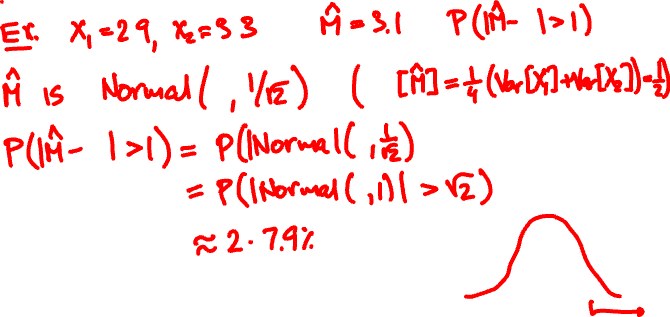 Ex. X₁=29, X₂=33 M̂=3.1 P(|M̂- |>1)
M̂ is Normal( , 1/√2) ( [M̂]=¼(Var[X₁]+Var[X₂])=½)
P(|M̂- |>1) = P(|Normal( , 1/√2)
= P(|Normal( ,1)|>√2)
≈2·7.9%